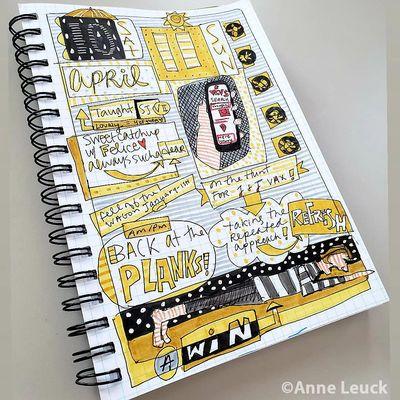 10
SAT
11
SUN
april
taught
Sweet catchup
w/ Felice
always such a dear
SEARCH
fell off the
wagon
on the Hunt
FOR J&J VAX!
AM/PM
BACK at the
PLANKS!
taking the
Repeated
approach!
REFRESH
A WIN
©Anne Leuck